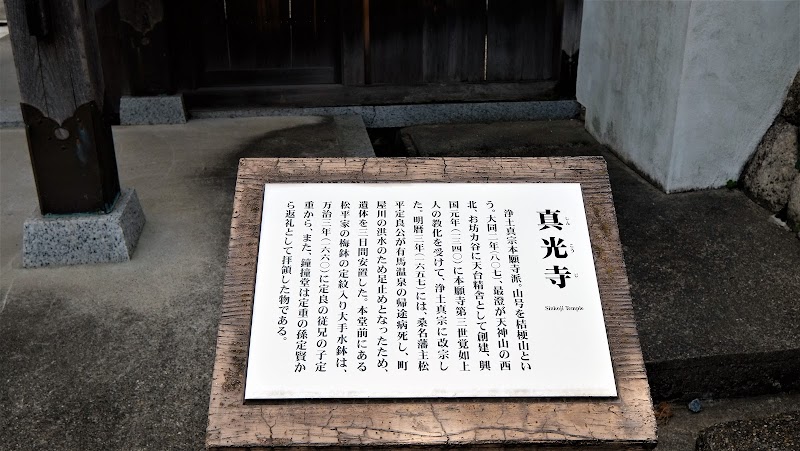 真光寺
しんこうじ
Sinkoji Temple
浄土真宗本願寺派。山号を桔梗山とい
う。大同二年(八〇七)、最澄が天神山の西
北、お坊カ谷に天台精舎として創建、興
国元年(一三四〇)に本願寺第三世覚如上
人の教化を受けて、浄土真宗に改宗し
た。明暦三年(一六五七)には、桑名藩主松
平定良公が有馬温泉の帰途病死し、町
屋川の洪水のため足止めとなったため、
遺体を三日間安置した。本堂前にある
松平家の梅鉢の定紋入り大手水鉢は、
万治三年(一六六〇)に定良の従兄の子定
重から、また、鐘撞堂は定重の孫定賢か
ら返礼として拝領した物である。